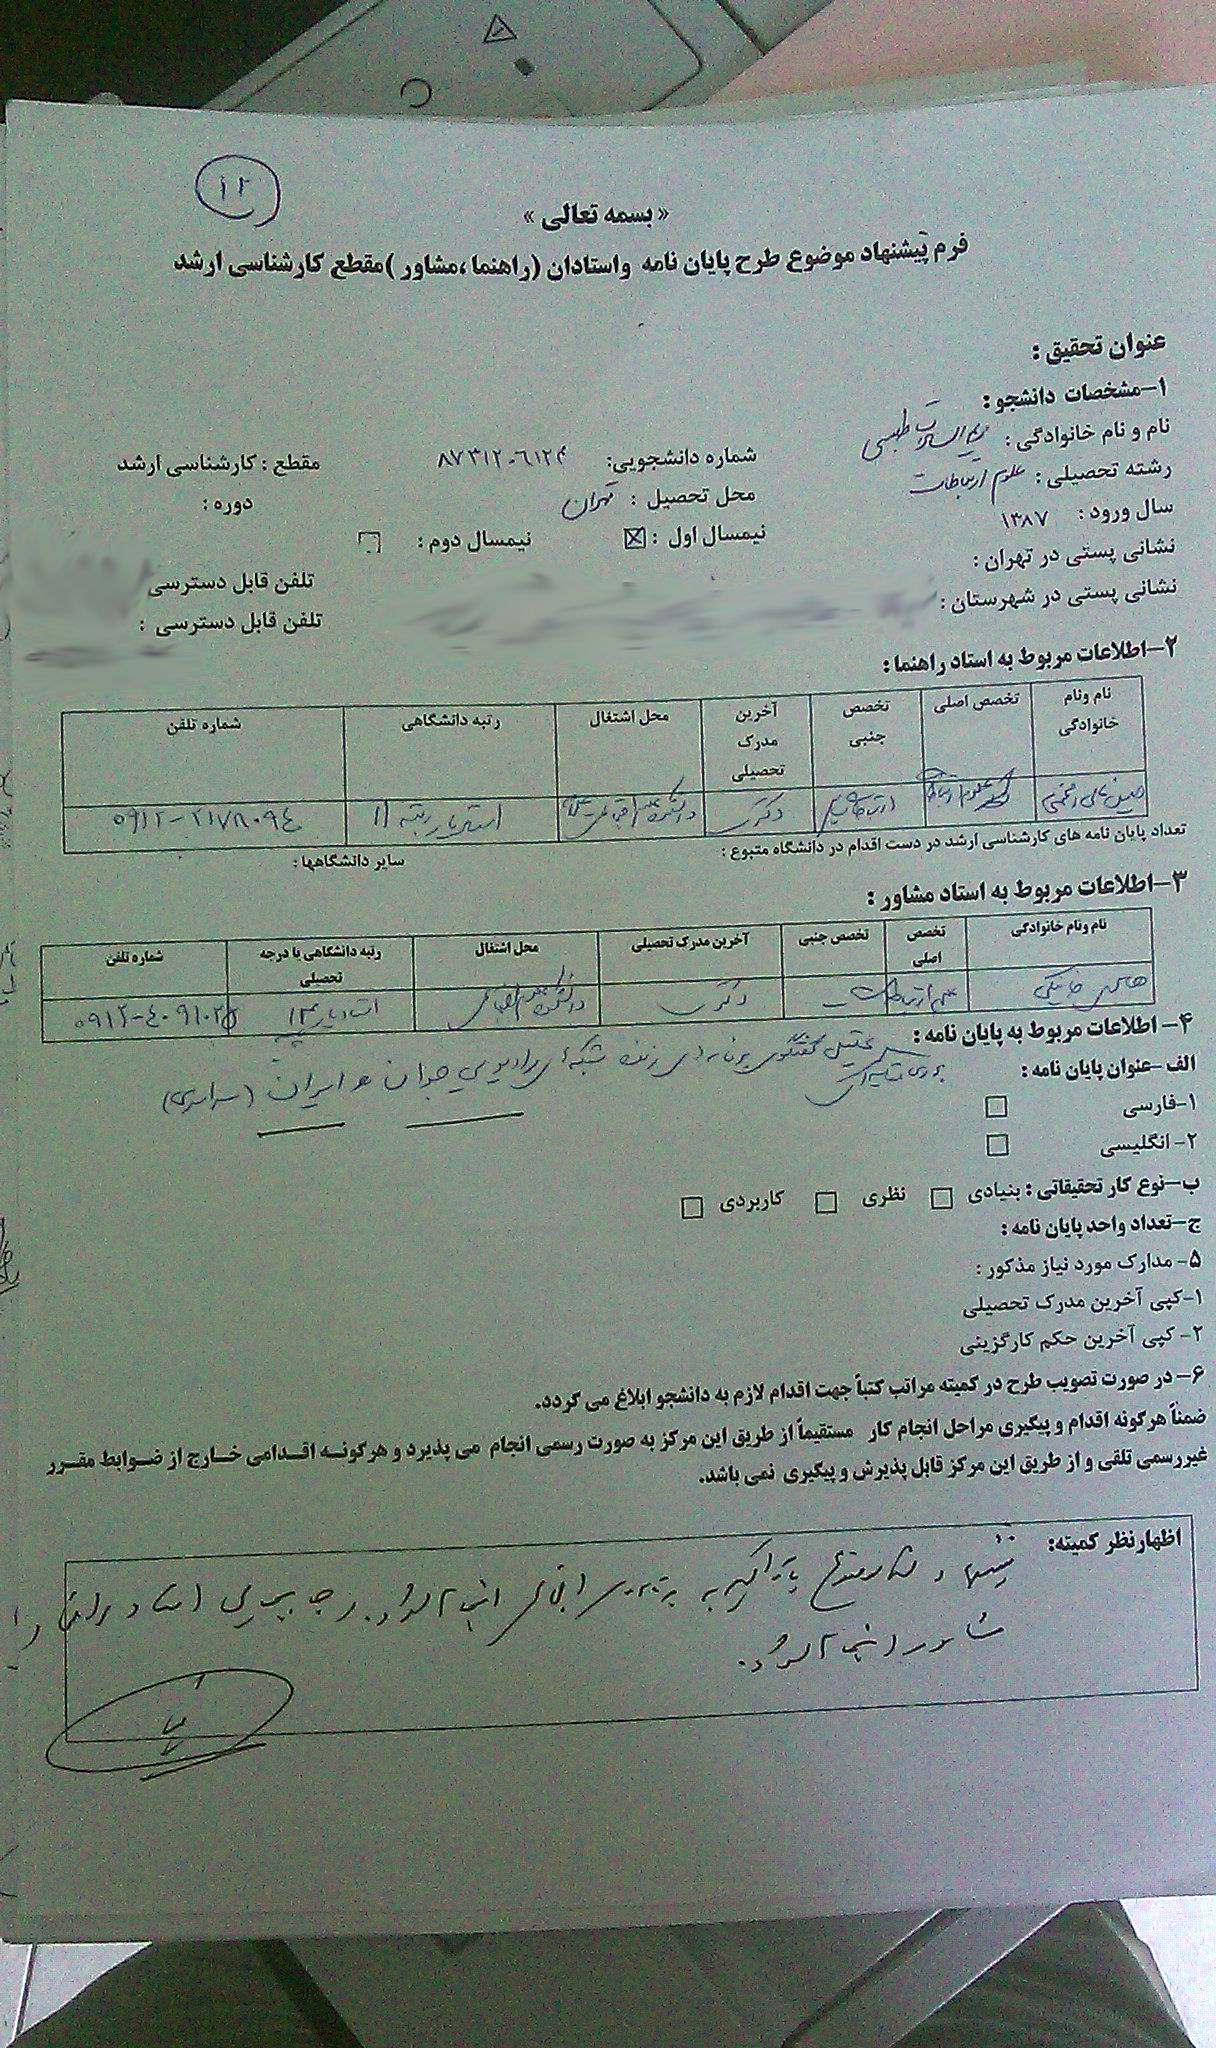 ۱۲
« بسمه تعالی »
فرم پیشنهاد موضوع طرح پایان نامه واستادان (راهنما ،مشاور )مقطع کارشناسی ارشد
عنوان تحقیق :
۱-مشخصات دانشجو :
نام و نام خانوادگی : مریم السادات طبسی شماره دانشجویی: ۸۷۳۱۲۰۶۱۲۴ مقطع : کارشناسی ارشد
رشته تحصیلی : علوم ارتباطات محل تحصیل : تهران دوره :
سال ورود : ۱۳۸۷ نیمسال اول : ☒ نیمسال دوم : ☐
نشانی پستی در تهران : تلفن قابل دسترسی
نشانی پستی در شهرستان : تلفن قابل دسترسی :
۲-اطلاعات مربوط به استاد راهنما :
نام ونام خانوادگی تخصص اصلی تخصص جنبی آخرین مدرک تحصیلی محل اشتغال رتبه دانشگاهی شماره تلفن
علوم دکتری دانشکده استادیار رتبه ۱۱ ۰۹۱۲-۲۱۷۸۰۹۴
تعداد پایان نامه های کارشناسی ارشد در دست اقدام در دانشگاه متبوع : سایر دانشگاهها :
۳-اطلاعات مربوط به استاد مشاور :
نام ونام خانوادگی تخصص اصلی تخصص جنبی آخرین مدرک تحصیلی محل اشتغال رتبه دانشگاهی یا درجه تحصیلی شماره تلفن
هادی خانیکی علوم ارتباطات دکتری دانشکده علوم اجتماعی استادیار
۴- اطلاعات مربوط به پایان نامه :
الف -عنوان پایان نامه : بررسی مقایسه‌ای تحلیل گفتگوی برنامه‌های زنده شبکه‌های رادیویی جوان و ایران (سراسری)
۱-فارسی ☐
۲- انگلیسی ☐
ب-نوع کار تحقیقاتی : بنیادی ☐ نظری ☐ کاربردی ☐
ج-تعداد واحد پایان نامه :
۵- مدارک مورد نیاز مذکور :
۱-کپی آخرین مدرک تحصیلی
۲- کپی آخرین حکم کارگزینی
۶- در صورت تصویب طرح در کمیته مراتب کتباً جهت اقدام لازم به دانشجو ابلاغ می گردد.
ضمناً هرگونه اقدام و پیگیری مراحل انجام کار مستقیماً از طریق این مرکز به صورت رسمی انجام می پذیرد و هرگونه اقدامی خارج از ضوابط مقرر
غیررسمی تلقی و از طریق این مرکز قابل پذیرش و پیگیری نمی باشد.
اظهارنظر کمیته: با تاکید به انجام شود. استاد
مشاور انجام شود.